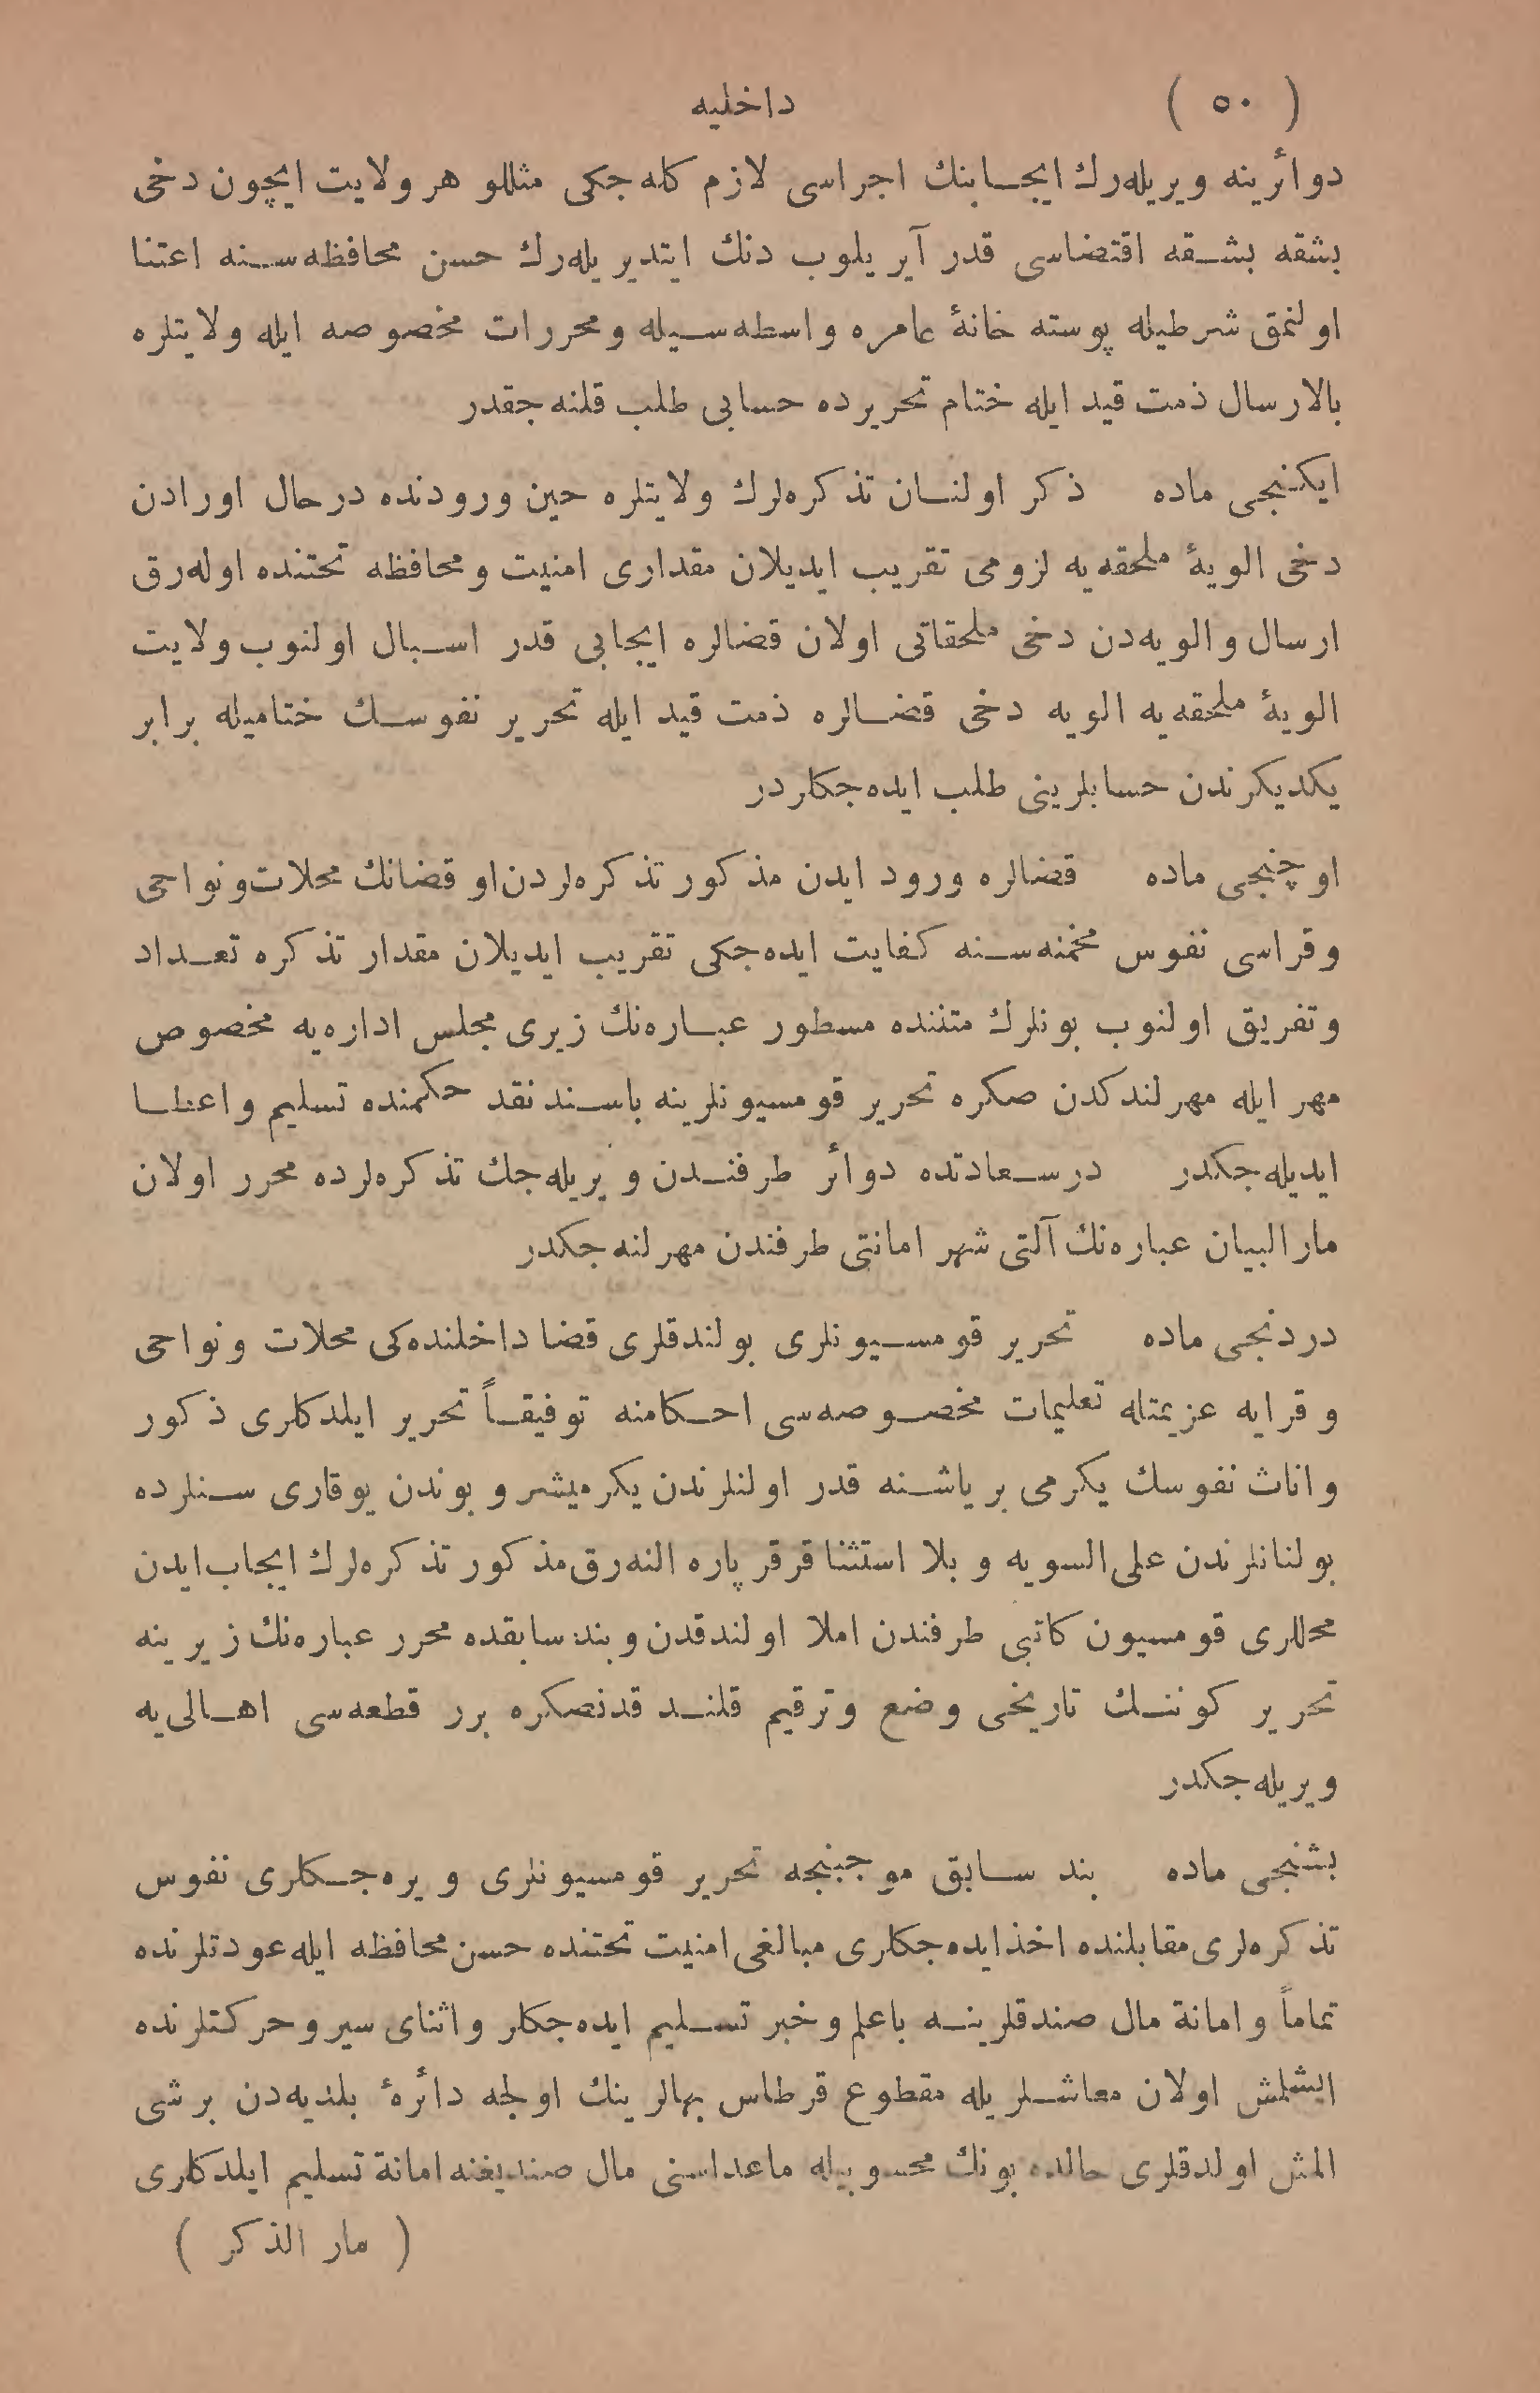 ( ٥٠ ) داخليه
دوائرينه ويريله‌رك ايجابنك اجراسى لازم كله‌جكى مثللو هر ولايت ايچون دخى
بشقه بشقه اقتضاسى قدر آيريلوب دنك ايتديريله‌رك حسن محافظه‌سنه اعتنا
اولنمق شرطيله پوسته خانهٔ عامره واسطه‌سيله ومحررات مخصوصه ايله ولايتلره
بالارسال ذمت قيد ايله ختام تحريرده حسابى طلب قلنه‌جقدر
ايكنجى ماده ذكر اولنان تذكره‌لرك ولايتلره حين ورودنده درحال اورادن
دخى الويهٔ ملحقه‌يه لزومى تقريب ايديلان مقدارى امنيت ومحافظه تحتنده اوله‌رق
ارسال والويه‌دن دخى ملحقاتى اولان قضالره ايجابى قدر اسبال اولنوب ولايت
الويهٔ ملحقه‌يه الويه دخى قضالره ذمت قيد ايله تحرير نفوسك ختاميله برابر
يكديكرندن حسابلرينى طلب ايده‌جكلردر
اوچنجى ماده قضالره ورود ايدن مذكور تذكره‌لردن او قضانك محلات ونواحى
وقراسى نفوس مخمنه‌سنه كفايت ايده‌جكى تقريب ايديلان مقدار تذكره تعداد
وتفريق اولنوب بونلرك متننده مسطور عباره‌نك زيرى مجلس اداره‌يه مخصوص
مهر ايله مهرلندكدن صكره تحرير قومسيونلرينه باسند نقد حكمنده تسليم واعطا
ايديله‌جكدر درسعادتده دوائر طرفندن ويريله‌جك تذكره‌لرده محرر اولان
مارالبيان عباره‌نك آلتى شهر امانتى طرفندن مهرلنه‌جكدر
دردنجى ماده تحرير قومسيونلرى بولندقلرى قضا داخلنده‌كى محلات ونواحى
وقرايه عزيمتله تعليمات مخصوصه‌سى احكامنه توفيقاً تحرير ايلدكلرى ذكور
واناث نفوسك يكرمى بر ياشنه قدر اولنلرندن يكرميشر وبوندن يوقارى سنلرده
بولنانلرندن على‌السويه وبلا استثنا قرقر پاره النه‌رق مذكور تذكره‌لرك ايجاب ايدن
محللرى قومسيون كاتبى طرفندن املا اولندقدن وبند سابقده محرر عباره‌نك زيرينه
تحرير كوننك تاريخى وضع وترقيم قلندقدنصكره برر قطعه‌سى اهالى‌يه
ويريله‌جكدر
بشنجى ماده بند سابق موجبنجه تحرير قومسيونلرى ويره‌جكلرى نفوس
تذكره‌لرى مقابلنده اخذ ايده‌جكلرى مبالغى امنيت تحتنده حسن محافظه ايله عودتلرنده
تماماً وامانة مال صندقلرينه باعلم وخبر تسليم ايده‌جكلر واثناى سير وحركتلرنده
ايشلمش اولان معاشلريله مقطوع قرطاس بهالرينك اولجه دائرهٔ بلديه‌دن برشى
المش اولدقلرى حالده بونك محسوبيله ماعداسنى مال صنديغنه امانة تسليم ايلدكلرى
( مار الذكر )